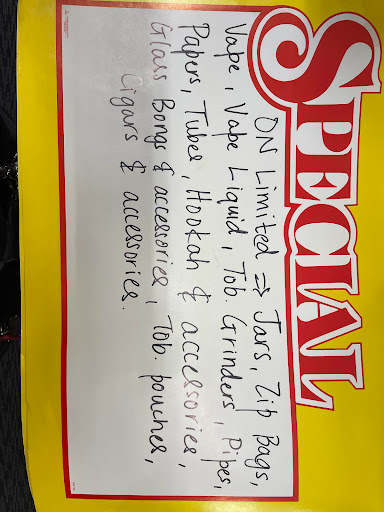 SPECIAL
ON Limited => Jars, Zip Bags,
Vape, Vape Liquid, Tob Grinders, Pipes,
Papers, Tubes, Hookah & accessories,
Glass Bongs & accessories, Tob. pouches,
Cigars & accessories.